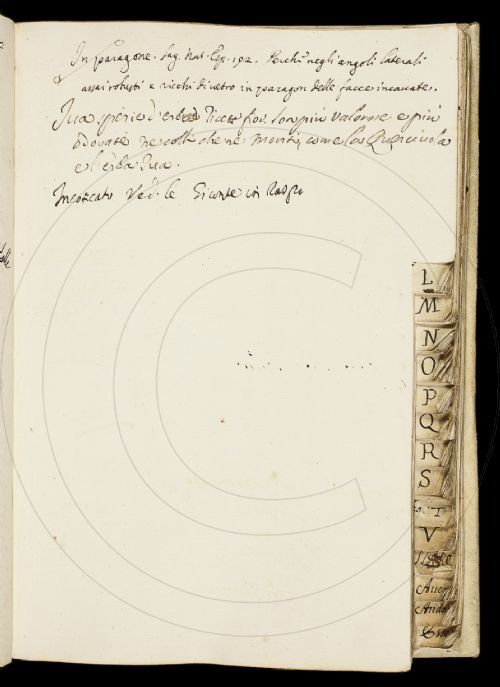 In paragone. Sag. Nat. Esp. 192. Perchè negli angoli laterali
assai robusti e ricchi di vetro in paragon delle facce incavate.
Iva specie d'erba Ricett. fior. son più valorose e più
odorate ne colli che ne monti, come la Querciuola
e l'erba Iva.
Incoccato Ved. le Giunte in
L
M
N
O
P
Q
R
S
T
V